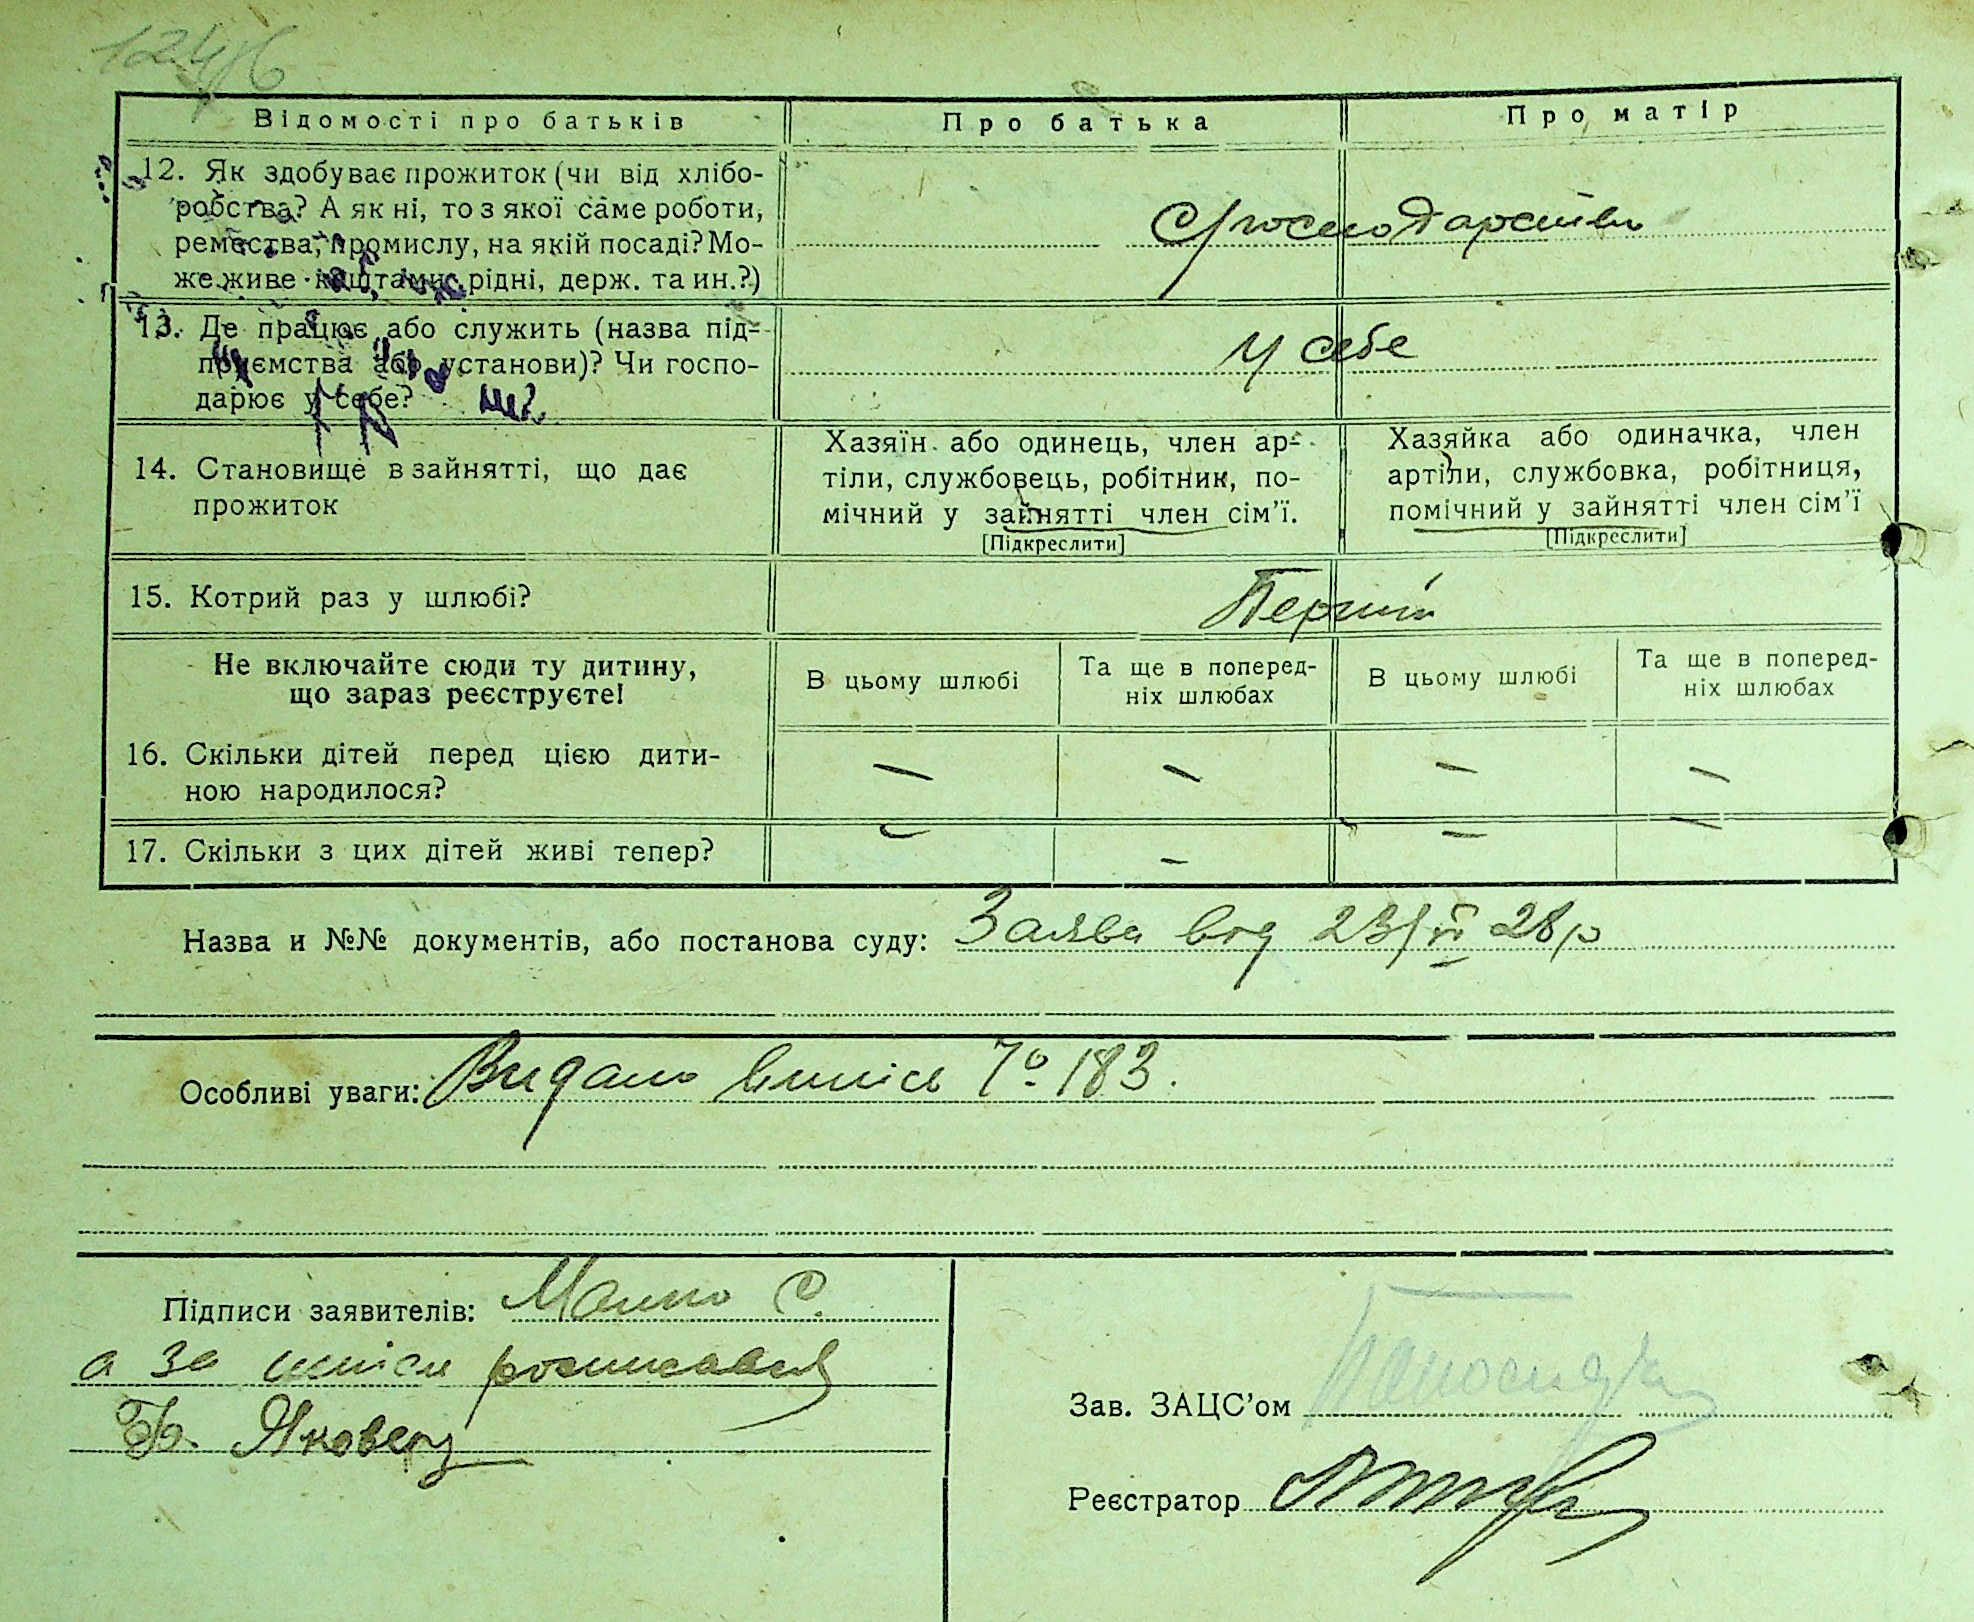 Відомості про батьків
Про батька
Про матір
12. Як здобуває прожиток (чи від хлібо-
робства? А як ні, то з якої саме роботи,
ремества, промислу, на якій посаді? Мо-
же живе коштами рідні, держ. та ин.?)
С/господарство
13. Де працює або служить (назва під-
приємства або установи)? Чи госпо-
дарює у себе?
У себе
14. Становище в зайнятті, що дає
прожиток
Хазяїн або одинець, член ар-
тіли, службовець, робітник, по-
мічний у зайнятті член сім'ї.
[Підкреслити]
Хазяйка або одиначка, член
артіли, службовка, робітниця,
помічний у зайнятті член сім'ї
[Підкреслити]
15. Котрий раз у шлюбі?
Перший
Не включайте сюди ту дитину,
що зараз реєструєте!
В цьому шлюбі
Та ще в поперед-
ніх шлюбах
В цьому шлюбі
Та ще в поперед-
ніх шлюбах
16. Скільки дітей перед цією дити-
ною народилося?
— — — —
17. Скільки з цих дітей живі тепер?
— — — —
Назва и №№ документів, або постанова суду: Заява від 23/VI 28 р
Особливі уваги: Видано випись № 183.
Підписи заявителів: С.
а за росписався
Яковец
Зав. ЗАЦС'ом
Реєстратор